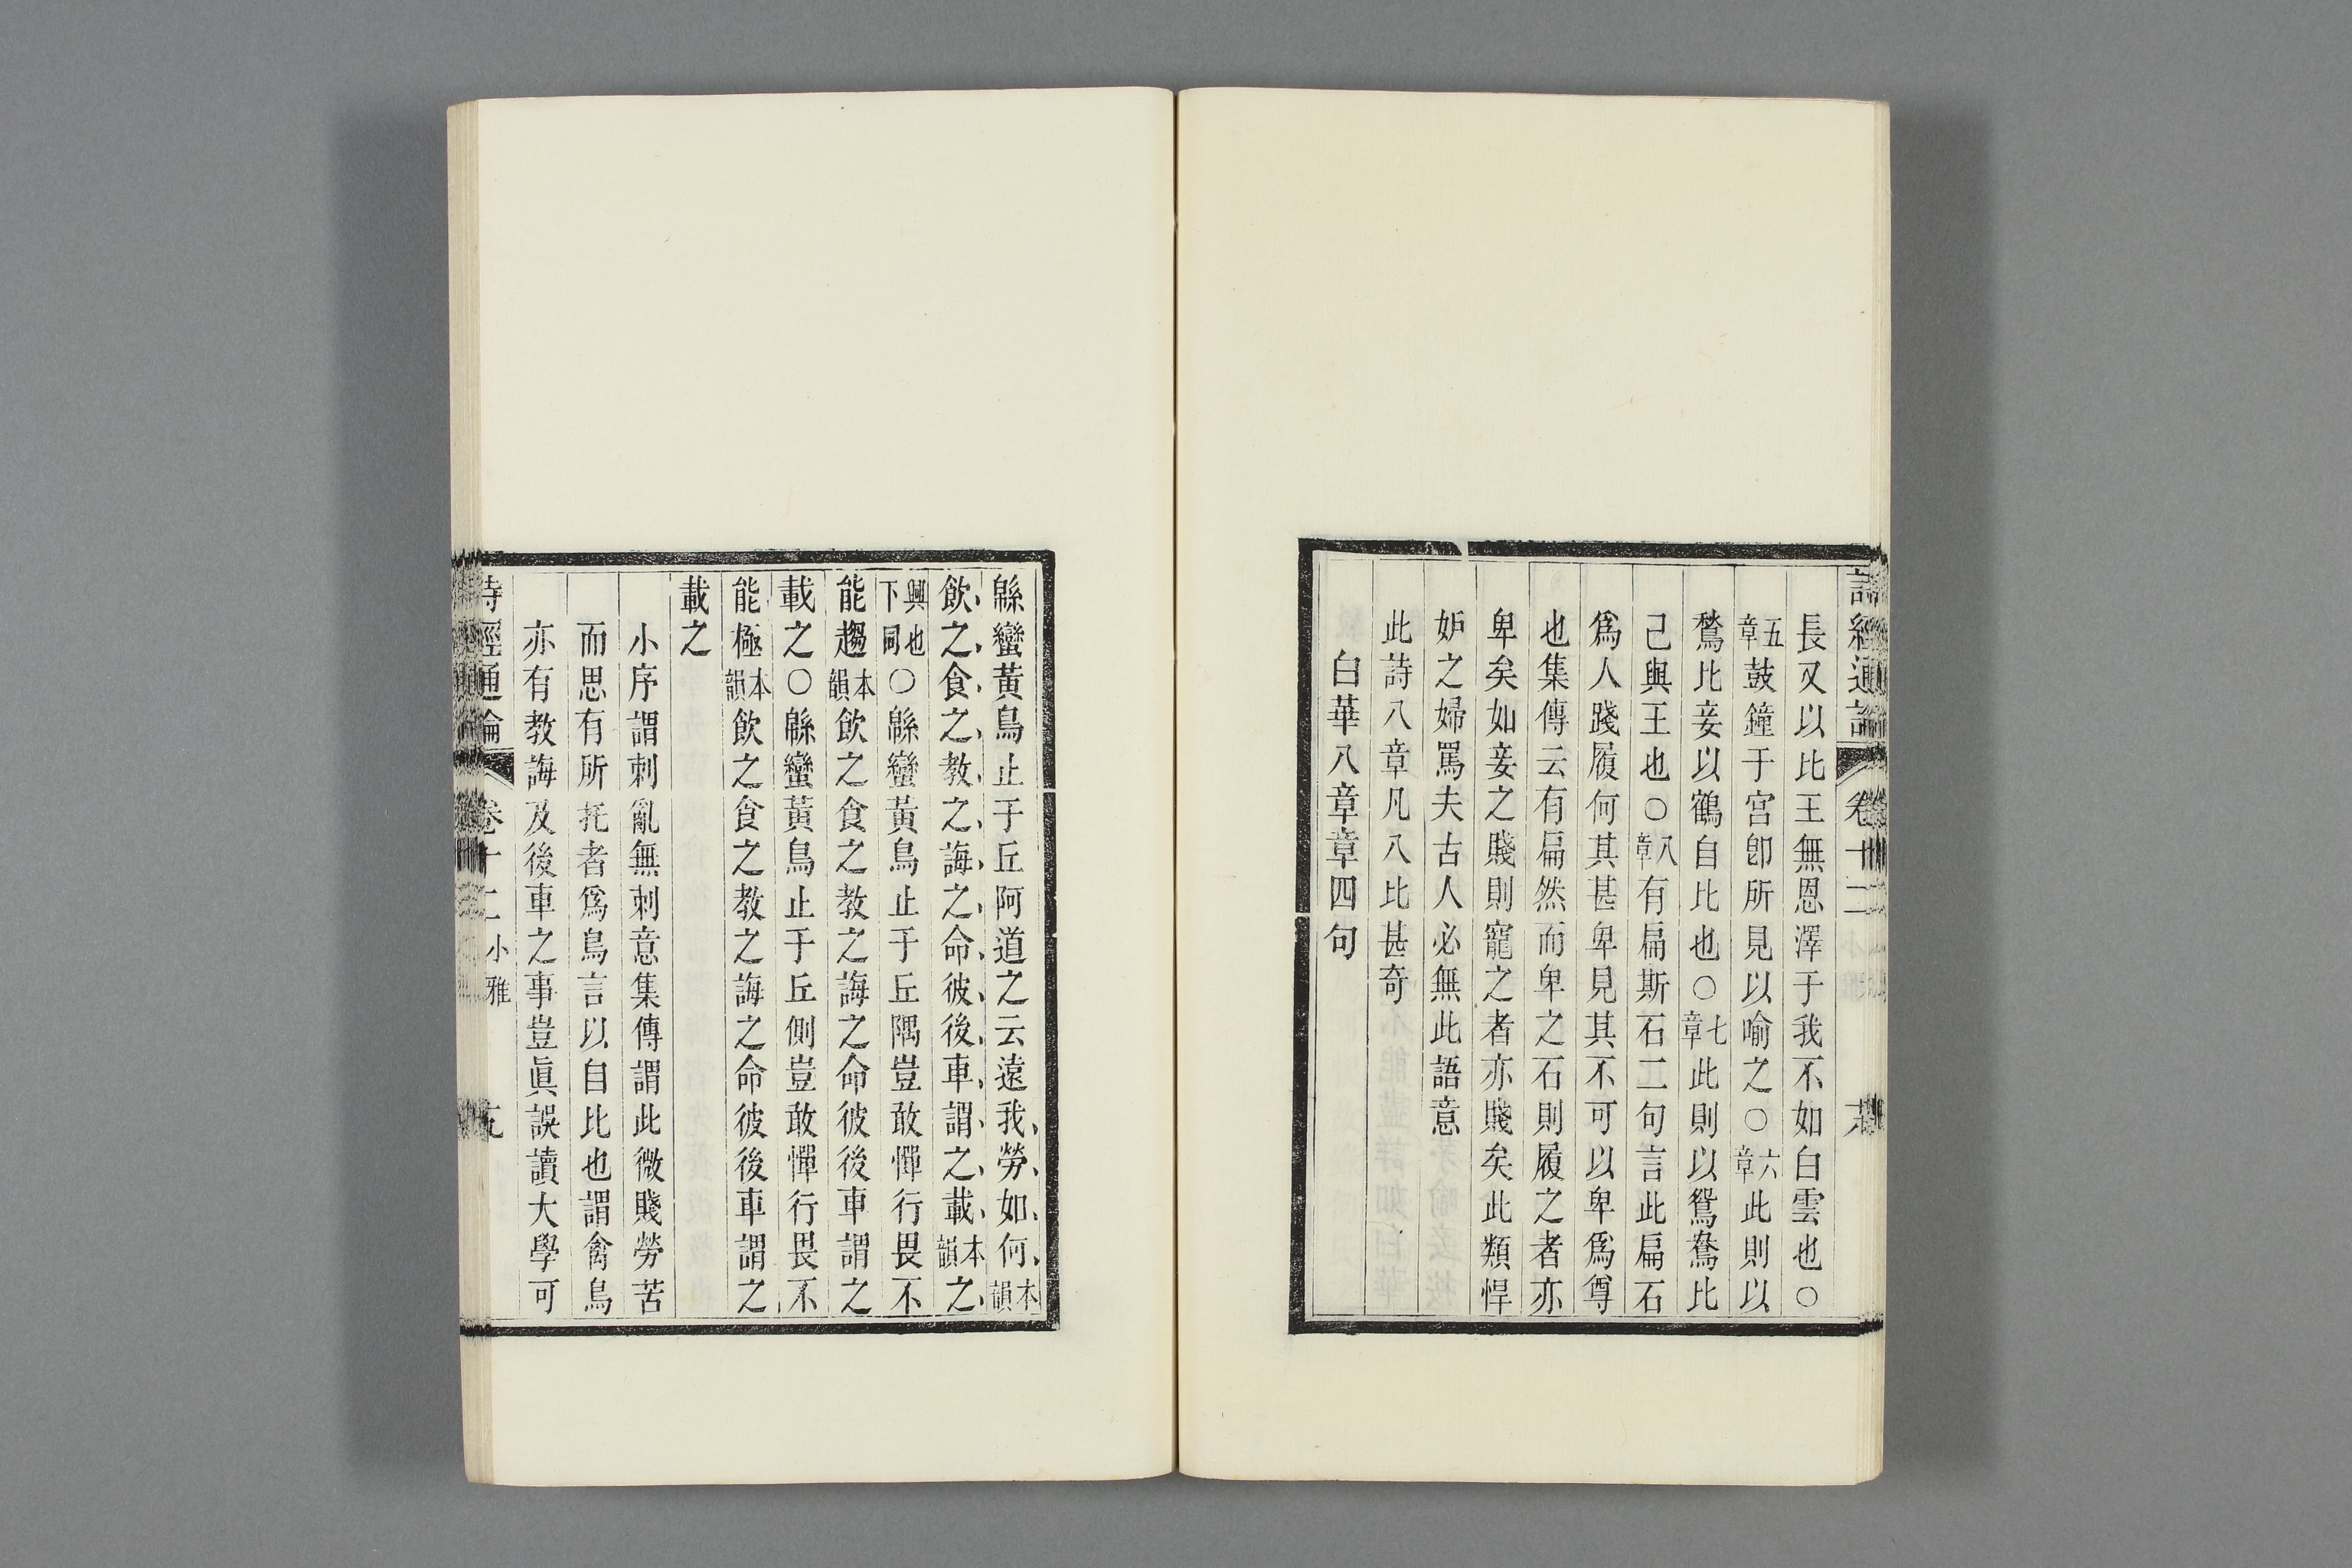 詩經通論 卷十二
長又以比王無恩澤于我不如白雲也○
五章鼓鐘于宮卽所見以喻之○六章此則以
鶖比妾以鶴自比也○七章此則以鴛鴦比
己與王也○八章有扁斯石二句言此扁石
爲人踐履何其甚卑見其不可以卑爲尊
也集傳云有扁然而卑之石則履之者亦
卑矣如妾之賤則寵之者亦賤矣此類悍
妒之婦罵夫古人必無此語意
此詩八章凡八比甚奇
白華八章章四句
緜蠻黃鳥止于丘阿道之云遠我勞如何本韻
飲之食之教之誨之命彼後車謂之載本韻之
興也下同○緜蠻黃鳥止于丘隅豈敢憚行畏不
能趨本韻飲之食之教之誨之命彼後車謂之
載之○緜蠻黃鳥止于丘側豈敢憚行畏不
能極本韻飲之食之教之誨之命彼後車謂之
載之
小序謂刺亂無刺意集傳謂此微賤勞苦
而思有所托者爲鳥言以自比也謂禽鳥
亦有教誨及後車之事豈眞誤讀大學可
詩經通論 卷十二 小雅